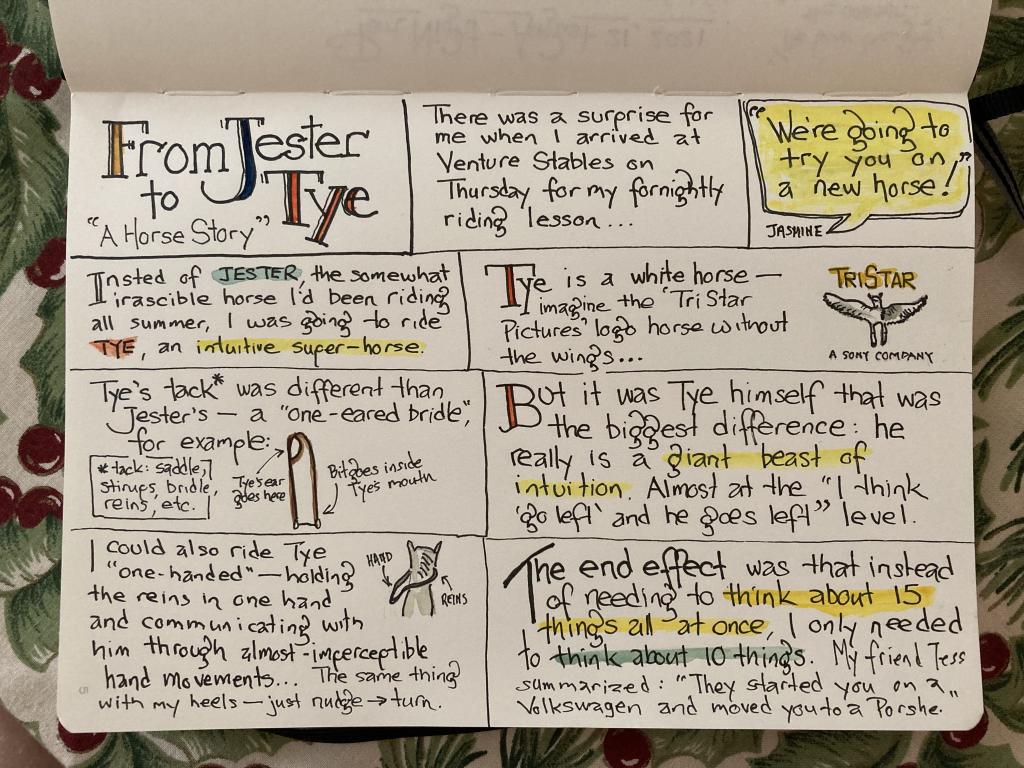 From Jester
to Tye
"A Horse Story"
There was a surprise for
me when I arrived at
Venture Stables on
Thursday for my fornightly
riding lesson...
"We're going to
try you on
a new horse!"
JASMINE
Insted of JESTER, the somewhat
irascible horse I'd been riding
all summer, I was going to ride
TYE, an intuitive super-horse.
Tye is a white horse —
imagine the 'Tri Star
Pictures' logo horse without
the wings...
TRISTAR
A SONY COMPANY
Tye's tack* was different than
Jester's — a "one-eared bridle",
for example:
*tack: saddle,
stirups, bridle,
reins, etc.
Tye's ear
goes here
Bit goes inside
Tye's mouth
But it was Tye himself that was
the biggest difference: he
really is a giant beast of
intuition. Almost at the "I think
'go left' and he goes left" level.
I could also ride Tye
"one-handed" — holding
the reins in one hand
and communicating with
him through almost-imperceptible
hand movements... The same thing
with my heels — just nudge → turn.
HAND
REINS
The end effect was that instead
of needing to think about 15
things all at once, I only needed
to think about 10 things. My friend Tess
summarized: "They started you on a
Volkswagen and moved you to a Porshe."
5